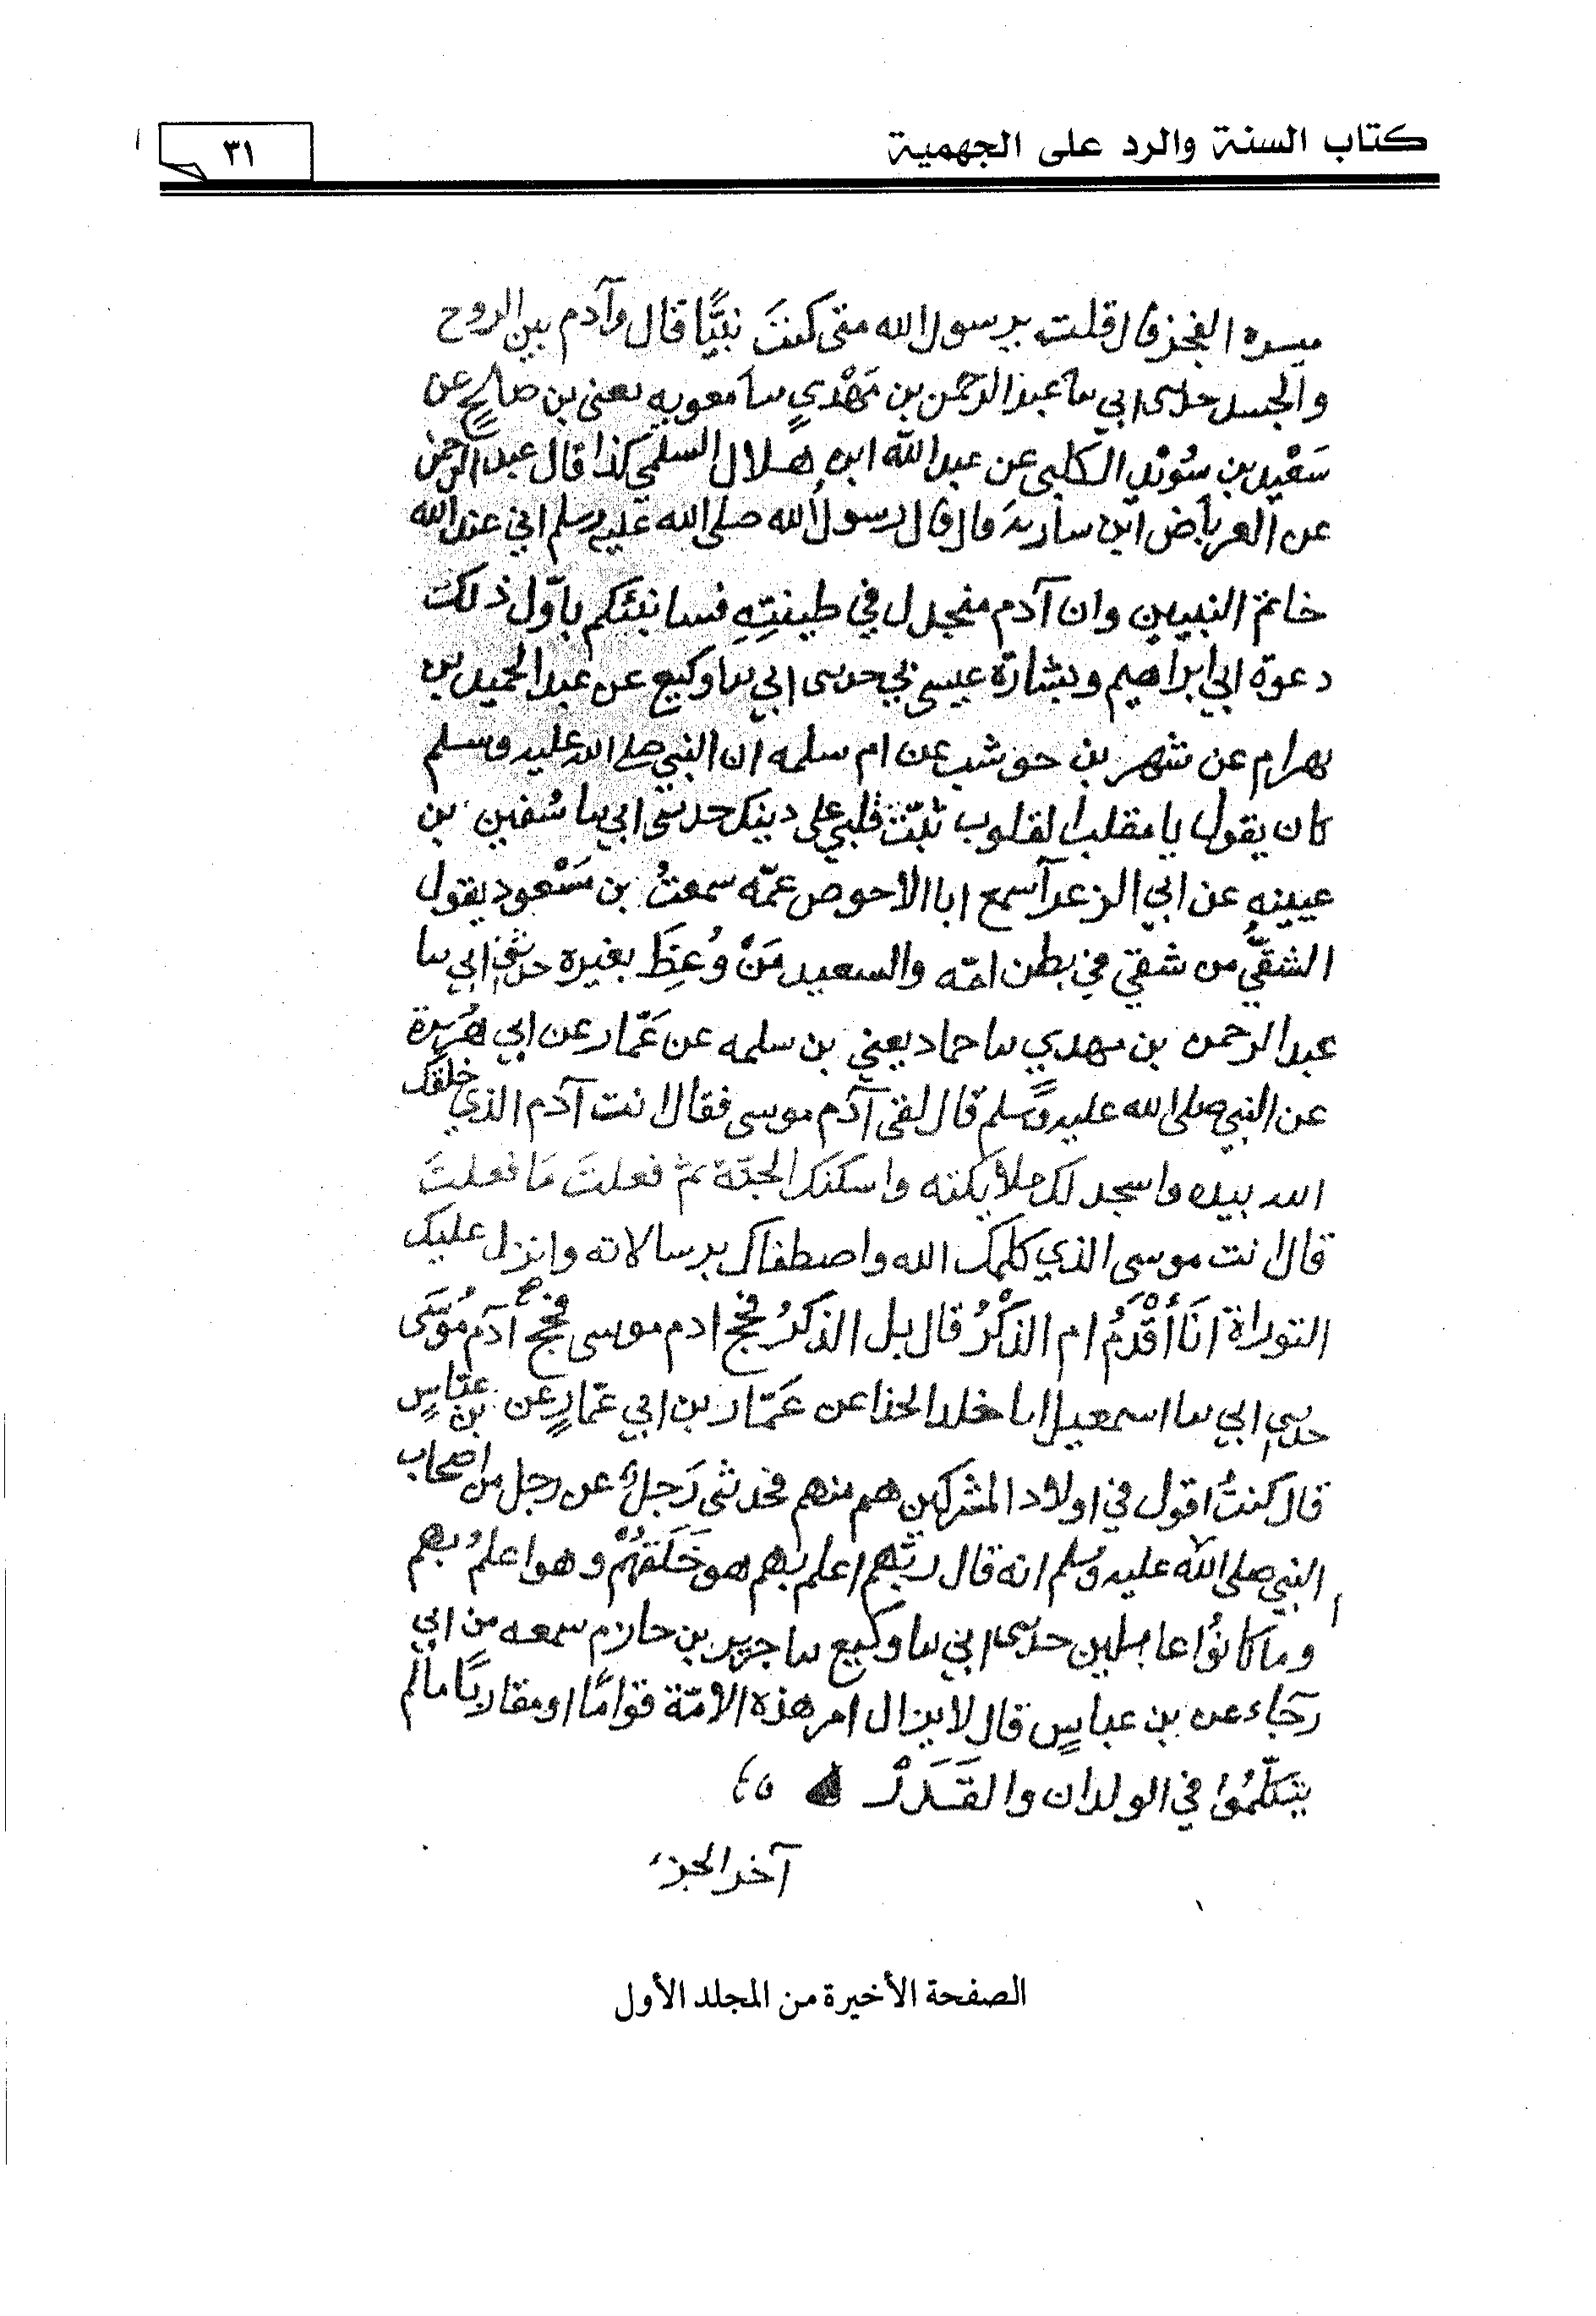 كتاب السنة والرد على الجهمية
٣١
ميسره الفجر قال قلت يرسول الله متى كنتَ نبيًّا قال وآدم بين الروح
والجسد حدثنى ابي سا عبد الرحمن بن مَهْديٍ سا معويه يعنى بن صالحٍ عن
سَعْيد بن سُوَيْدٍ الكلبى عن عبد الله ابن هلال السلمي كذا قال عبد الرحمن
عن العرباض ابن ساريةَ قال قال رسول الله صلى الله عليه وسلم اني عند الله
خاتم النبيين وان آدم منجدل في طينتِهِ فسانبئكم باوّل ذلك
دعوة ابي ابراهيم وبشارة عيسى بي حدثنى ابي سا وكيع عن عبد الحميد بن
بهرام عن شهر بن حوشب عن ام سلمه ان النبي صلى الله عليه وسلم
كان يقول يا مقلب القلوب ثبّت قلبي على دينك حدثنى ابي سا سُفين بن
عيينه عن ابي الزعرآ سمع ابا الاحوص عمّه سمعتُ بن مَسْعود يقول
الشقيُّ من شقي في بطن امّه والسعيد مَنْ وُعِظَ بغيره حدثنى ابي سا
عبد الرحمن بن مهدي سا حماد يعني بن سلمه عن عَمّار عن ابي هُريرة
عن النبي صلى الله عليه وسلم قال لقى آدم موسى فقال انت آدم الذي خلقك
الله بيده واسجد لك ملايكته واسكنك الجنّة ثمّ فعلتَ مَا فعلتَ
قال انت موسى الذي كلمك الله واصطفاك برسالاته وانزل عليك
التوراة انَا أقْدَمُ ام الذكْرُ قال بل الذكرُ فحج ادم موسى فحج آدم مُوسَى
حدثنى ابي سا اسمعيل انا خلد الحذا عن عَمّار بن ابي عمّارٍ عن بن عبّاسٍ
قال كنتُ اقول في اولاد المشركين هم منهم فحدثنى رَجلٌ عن رجل من اصحاب
النبي صلى الله عليه وسلم انه قال ربّهم اعلم بهم هو خَلَقهُمْ وهو اعلمُ بهم
وما كانوُا عاملين حدثنى ابي سا وكيع سا جرير بن حازم سمعه من ابي
رجاء عن بن عباسٍ قال لا يزال امر هذه الامّة قوامًا او مقاربًا ما لم
يتكلّمُوا في الولدان والقَدَرْ
آخر الجزء
الصفحة الأخيرة من المجلد الأول